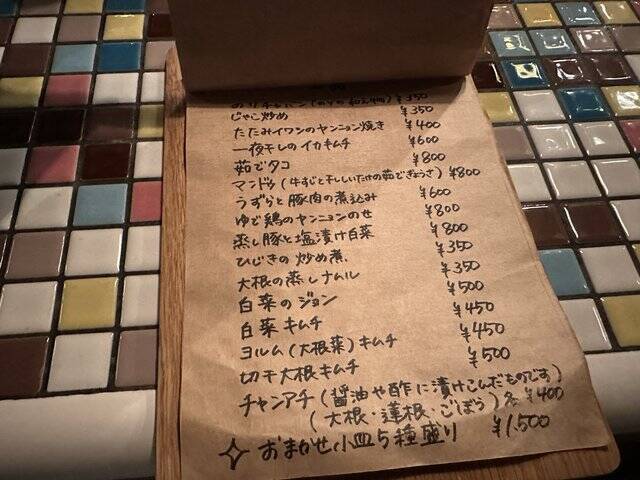 (のりの和え物) ¥350
じゃこ炒め ¥350
たたみイワシのヤンニョン焼き ¥400
一夜干しのイカキムチ ¥600
茹でタコ ¥800
マンドゥ(牛すじと干ししいたけの茹でぎょうざ) ¥800
うずらと豚肉の煮込み ¥600
ゆで鶏のヤンニョンのせ ¥800
蒸し豚と塩漬け白菜 ¥800
ひじきの炒め煮 ¥350
大根の蒸しナムル ¥350
白菜のジョン ¥500
白菜キムチ ¥450
ヨルム(大根菜)キムチ ¥450
切干大根キムチ ¥500
チャンアチ(醤油や酢に漬けこんだものです)
(大根・蓮根・ごぼう)各¥400
おまかせ小皿5種盛り ¥1,500